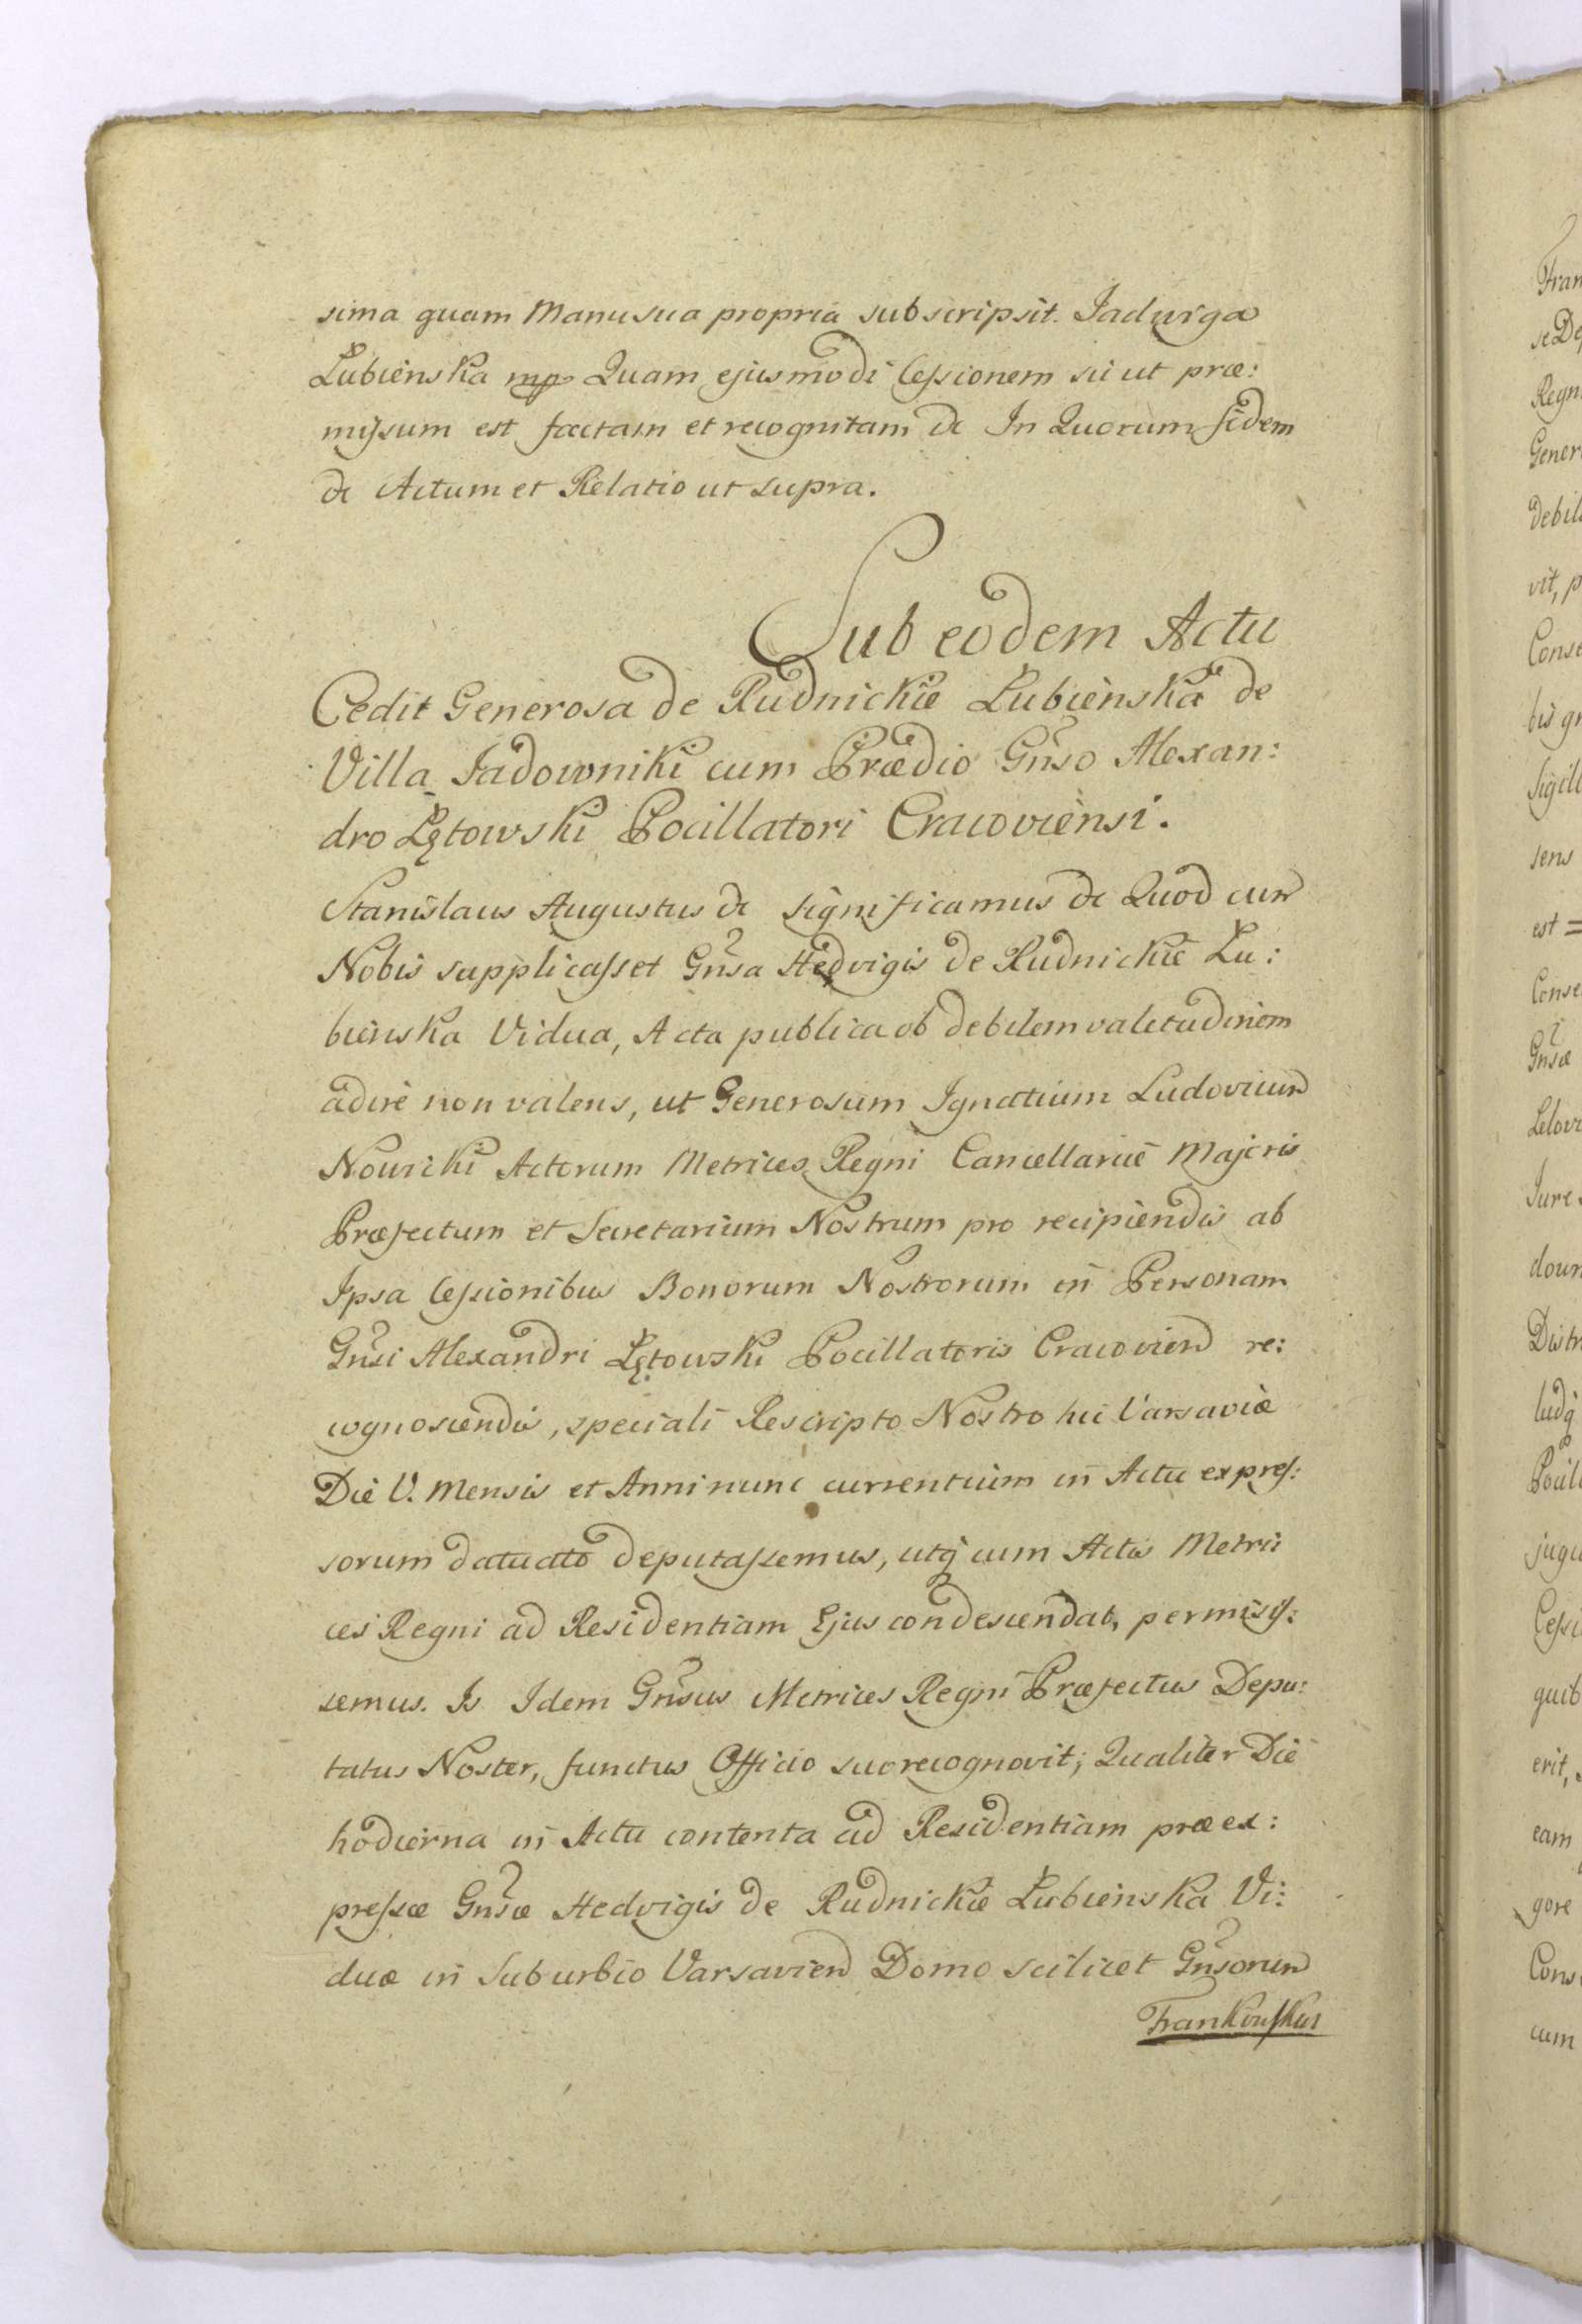 sima quam Manu sua propria subscripsit. Jadwiga
Łubienska mp Quam ejusmodi Cessionem sic ut præ:
missum est factam et recognitam &c In Quorum fidem
&c Actum et Relatio ut supra.
Sub eodem Actu
Cedit Generosa de Rudnickie Łubienska de
Villa Jadowniki cum Prædio Gnso Alexan:
dro Łętowski Pocillatori Cracoviensi.
Stanislaus Augustus &c significamus &c Quod cum
Nobis supplicasset Gnsa Hedvigis de Rudnickie Łu:
bienska Vidua, Acta publica ob debilem valetudinem
adire non valens, ut Generosum Ignatium Ludovicum
Nowicki Actorum Metrices Regni Cancellariæ Majoris
Præfectum et Secretarium Nostrum pro recipiendis ab
Ipsa Cessionibus Bonorum Nostrorum in Personam
Gnsi Alexandri Łętowski Pocillatoris Cracovien re:
cognoscendis, speciali Rescripto Nostro hic Varsaviæ
Die V. Mensis et Anni nunc currentium in Actu expres:
sorum datuato deputassemus, utq cum Actis Metri
ces Regni ad Residentiam Ejus condescendat, permisis:
semus. Is Idem Gnsus Metrices Regni Præfectus Depu:
tatus Noster, functus Officio suo recognovit; Qualiter Die
hodierna in Actu contenta ad Residentiam præex:
pressæ Gnsæ Hedvigis de Rudnickie Łubienska Vi:
duæ in Suburbio Varsavien Domo scilicet Gnsorum
Frankouskus
Fran
se De
Regn
Gener
debil
vit, p
Conse
bis gr
Sigill
sens
est =
Conse
Gnsæ
Lelov
Jure
down
Distr
ludq
Pocil
jugu
Cessi
quib
erit,
eam
gore
Cons
cum